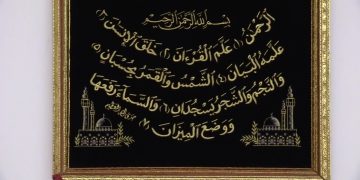 بِسْمِ اللَّهِ الرَّحْمَٰنِ الرَّحِيمِ
الرَّحْمَٰنُ (١) عَلَّمَ الْقُرْءَانَ (٢) خَلَقَ الْإِنسَٰنَ (٣)
عَلَّمَهُ الْبَيَانَ (٤) الشَّمْسُ وَالْقَمَرُ بِحُسْبَانٍ (٥)
وَالنَّجْمُ وَالشَّجَرُ يَسْجُدَانِ (٦) وَالسَّمَاءَ رَفَعَهَا
وَوَضَعَ الْمِيزَانَ (٧)